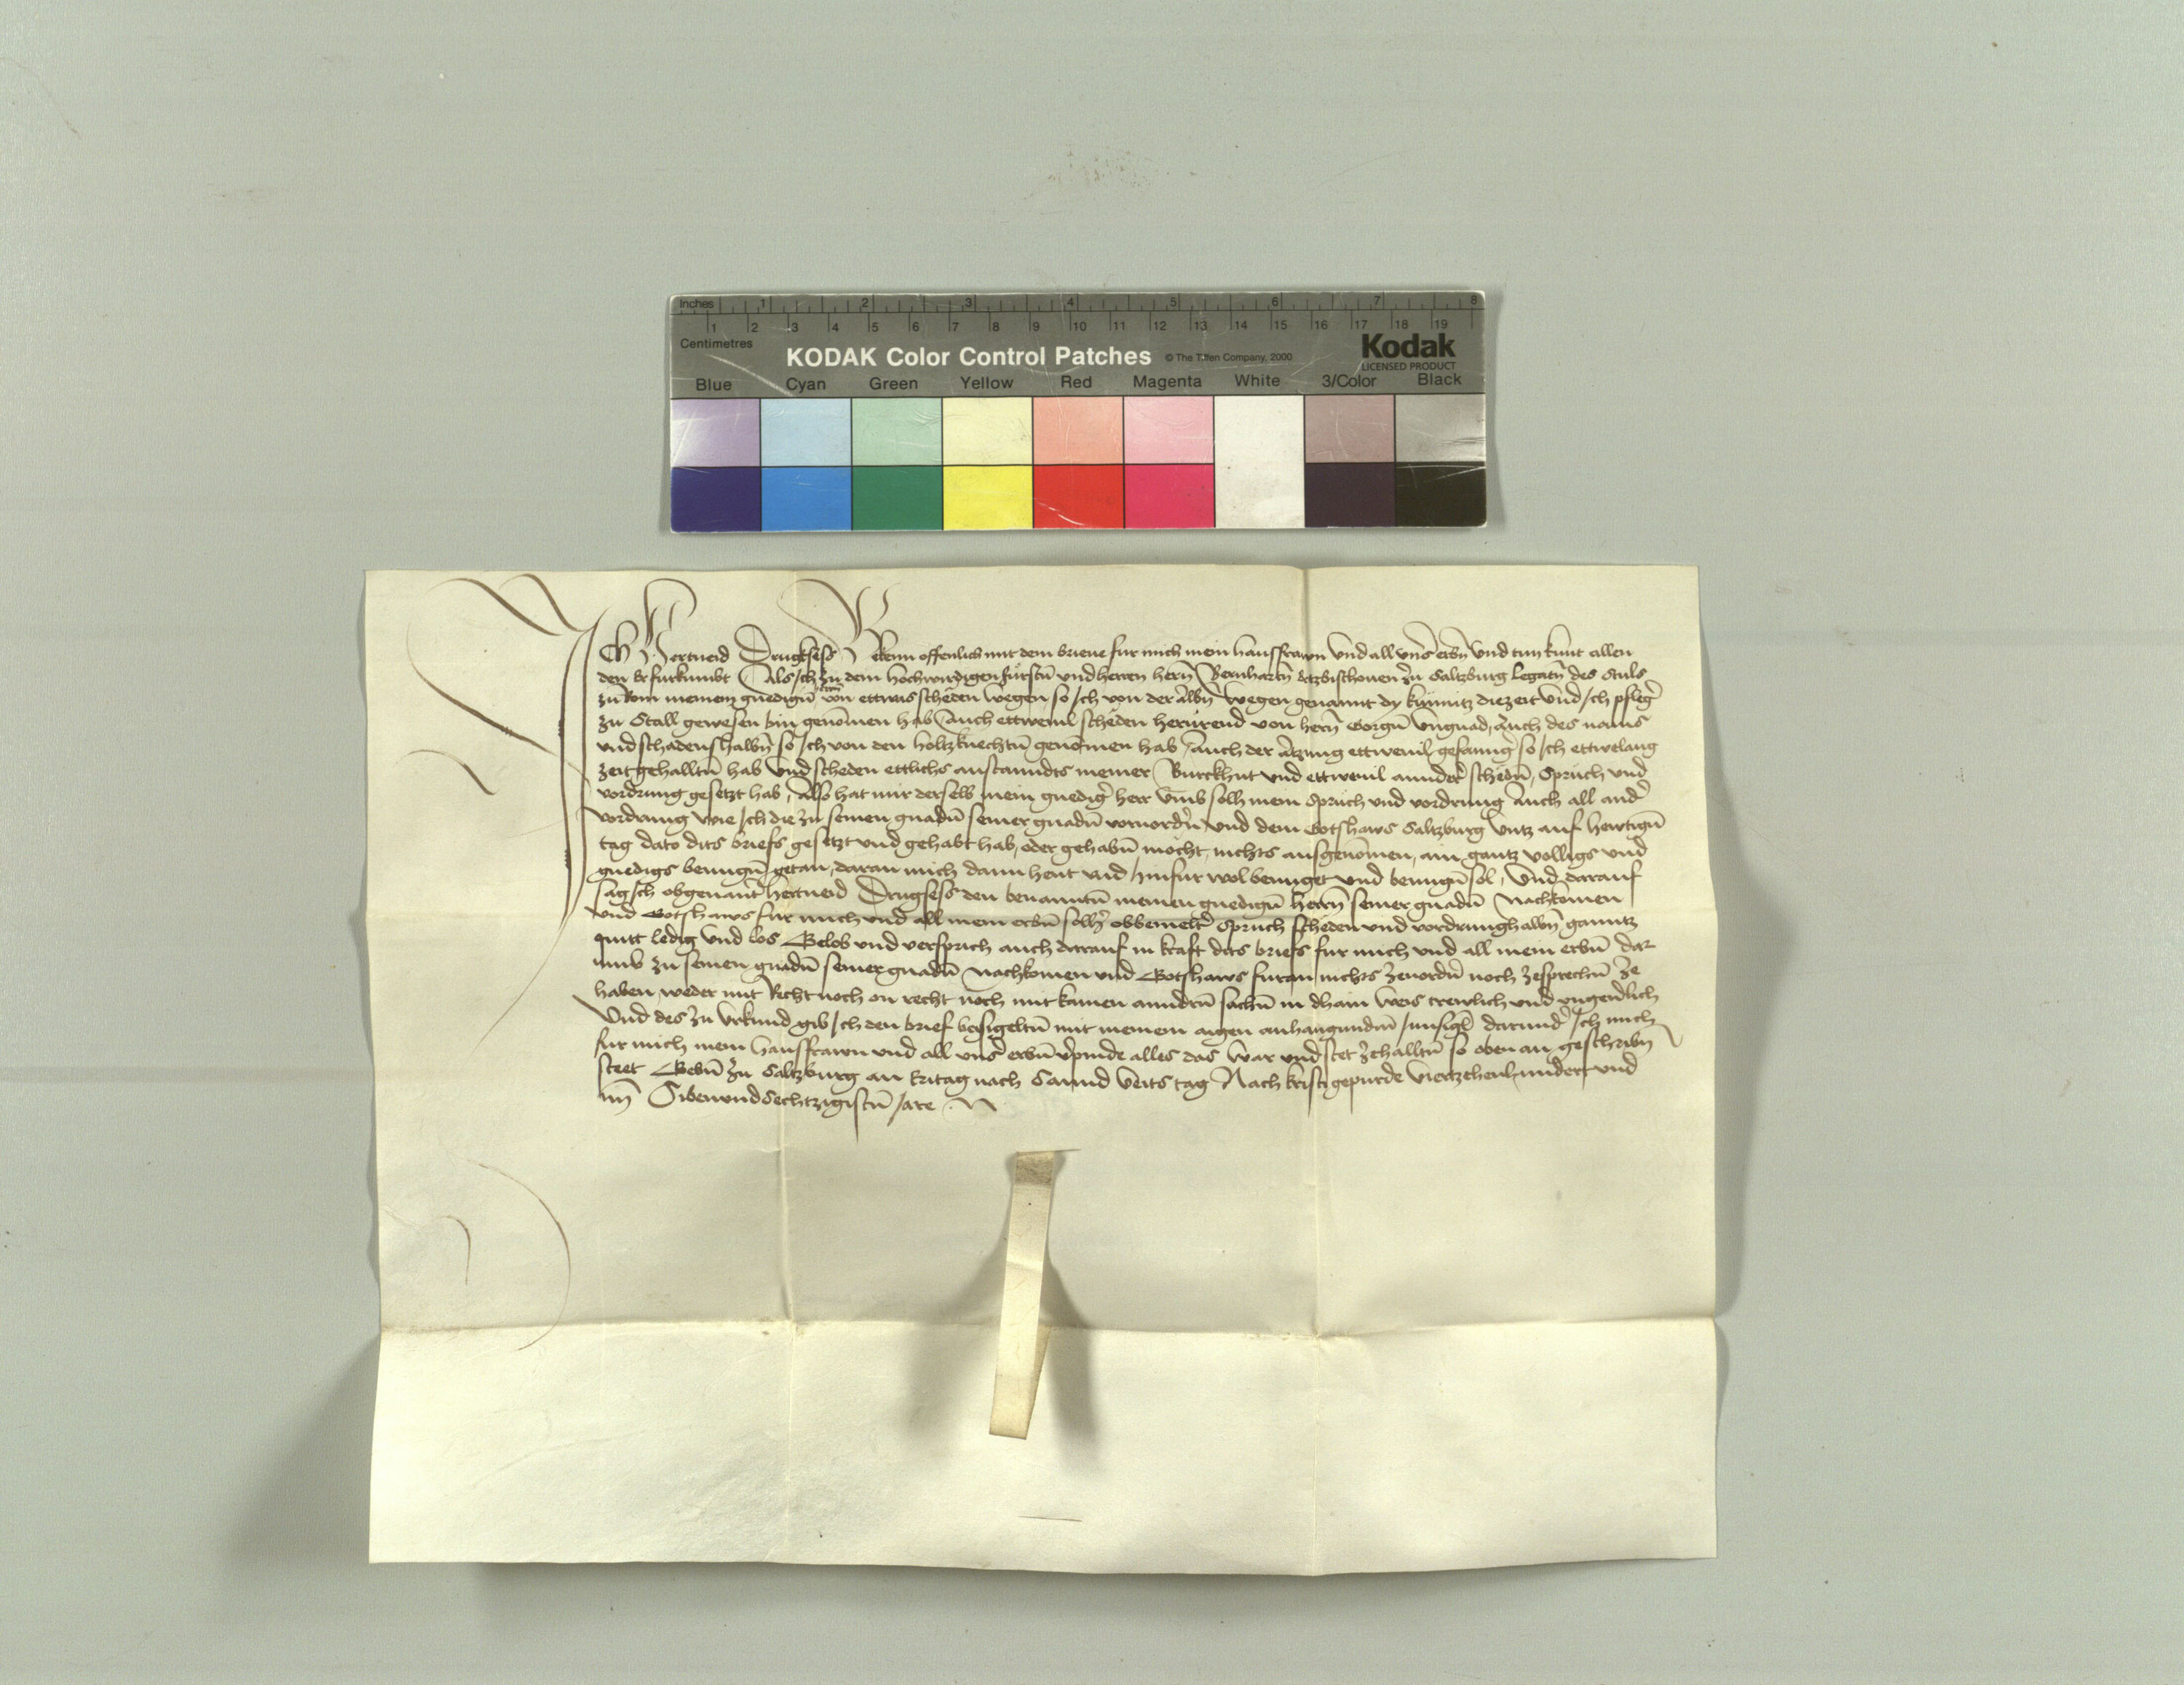 Inches 1 2 3 4 5 6 7 8
1 2 3 4 5 6 7 8 9 10 11 12 13 14 15 16 17 18 19
Centimetres
KODAK Color Control Patches © The Tiffen Company, 2000 Kodak
LICENSED PRODUCT
Blue Cyan Green Yellow Red Magenta White 3/Color Black
Ich Hertneid Drugksess Bekenn offenlich mit dem brieue fur mich mein hausfrawn Vnd all vnser erbn Vnd tun kunt allen
den er furkumbt Als Ich zu dem hochwirdigen fürstn vnd herren hern Bernhartn Ertzbischouen zu Saltzburg Legatn des Stuls
zu Rom meinem gnedigen herrn von ettwas scheden wegen so Ich von der albn wegen genannt dy kuenitz die zeit vnd Ich pfleger
zu Stall gewesen bin genomen hab Auch ettweuil scheden herrurend von hern Gorgn Vngnad, Auch des nams
vnd schadenshalbn so Ich von den holtzknechtn genomen hab, Auch der Atzung ettweuil gefanngen so Ich ettwelang
zeit gehalltn hab Vnd scheden ettlichs anstanndts meiner Burckhut vnd ettweuil annder schedn, Spruch vnd
vordrung gesetzt hab, Also hat mir derselb mein gnediger herr Vmb solh mein Spruch vnd vordrung Auch all ander
vordrung wie Ich die zu seinen gnadn seiner gnadn voruordern Vnd dem Gotshaws Saltzburg Vntz auf hewtign
tag dato dits briefs gesetzt vnd gehabt hab, oder gehabn mocht, nichts ausgenomen, ain gantz volligs vnd
gnedigs benugen getan, daran mich dann heut vnd hinfur wol benuget vnd benugn sol, Vnd darauf
sag Ich obgenanter hertneid Drugsess den benanntn meinen gnedign herrn seiner gnadn Nachkomen
vnd Gotshaws fur mich vnd all mein erbn solher obbemelter Spruch scheden vnd vordrunghalbn ganntz
quitt ledig vnd los Gelob vnd versprich auch darauf in kraft dits briefs fur mich vnd all mein erbn dar
umb zu seinen gnadn seiner gnadn Nachkomen vnd Gotshaws furan nichts zeuordern noch zesprechn ze
haben, weder mit Recht noch on recht noch mit kainen anndern sachn in dhain weis trewlich vnd vngeuerlich
Vnd des zu Vrkund gib Ich den brief besigeltn mit meinem aigen anhangunndm Innsigl darunder Ich mich
fur mich mein hausfrawn vnd all vnser erbn verpinde alles das war vnd stet zehalltn so oben an geschribn
steet Gebn zu Saltzburg an Eritag nach Sannd Veits tag Nach Kristi gepurde Viertzehenhundert vnd
im Sibenvndsechtzigistn Jare